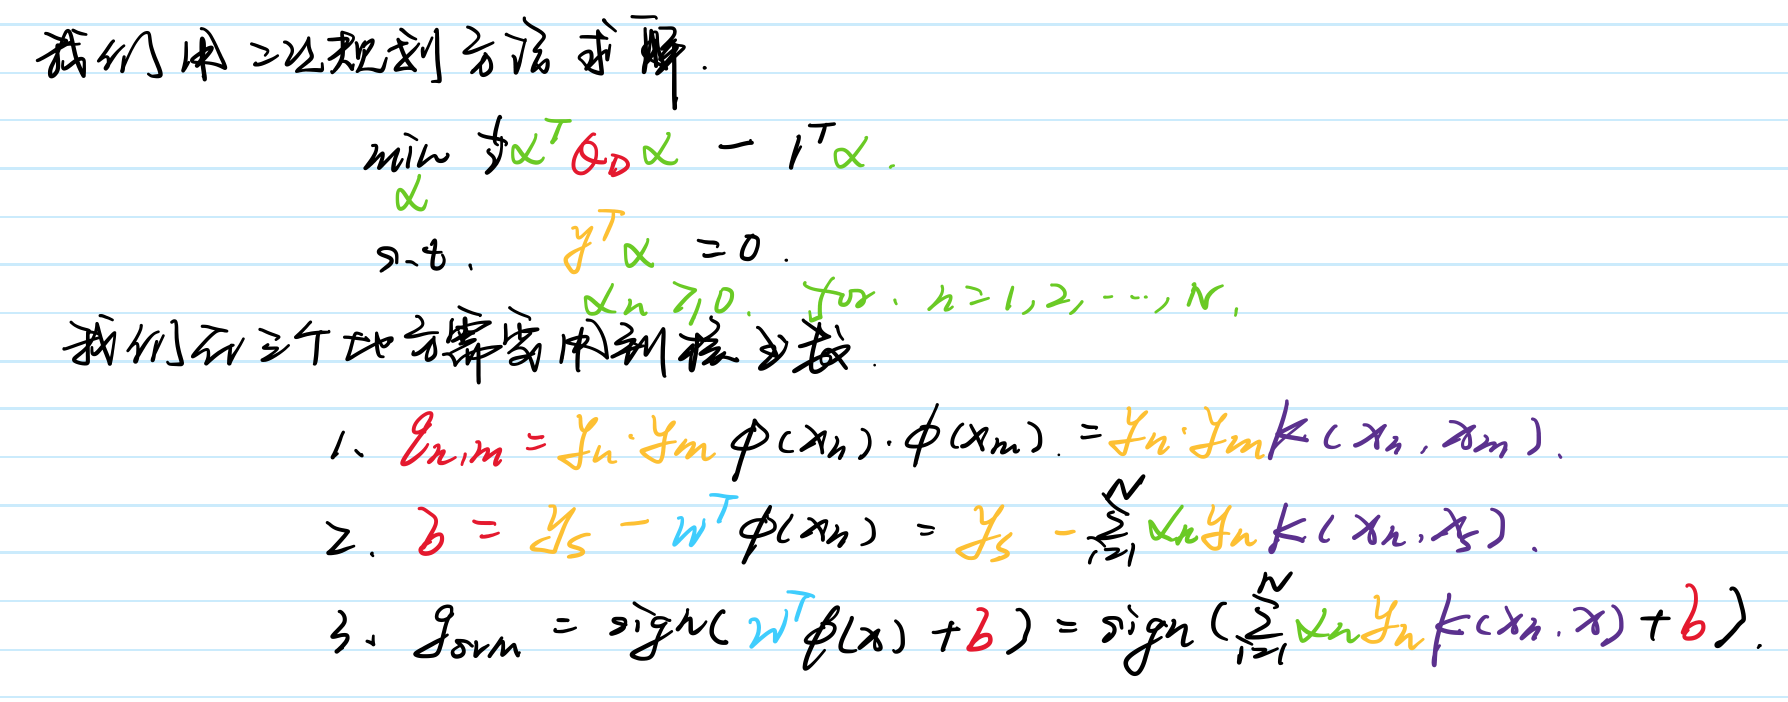 我们用二次规划方法求解.
min ½ α^T Q_D α − 1^T α.
α
s.t. y^T α = 0.
α_n ≥ 0. for. n=1,2,...,N.
我们在三个地方需要用到核函数.
1、 q_{n,m} = y_n·y_m φ(x_n)·φ(x_m). = y_n·y_m K(x_n, x_m).
2. b = y_s − w^T φ(x_n) = y_s − Σ_{i=1}^{N} α_n y_n K(x_n, x_s).
3、 g_{svm} = sign(w^T φ(x) + b) = sign(Σ_{i=1}^{N} α_n y_n K(x_n, x) + b).